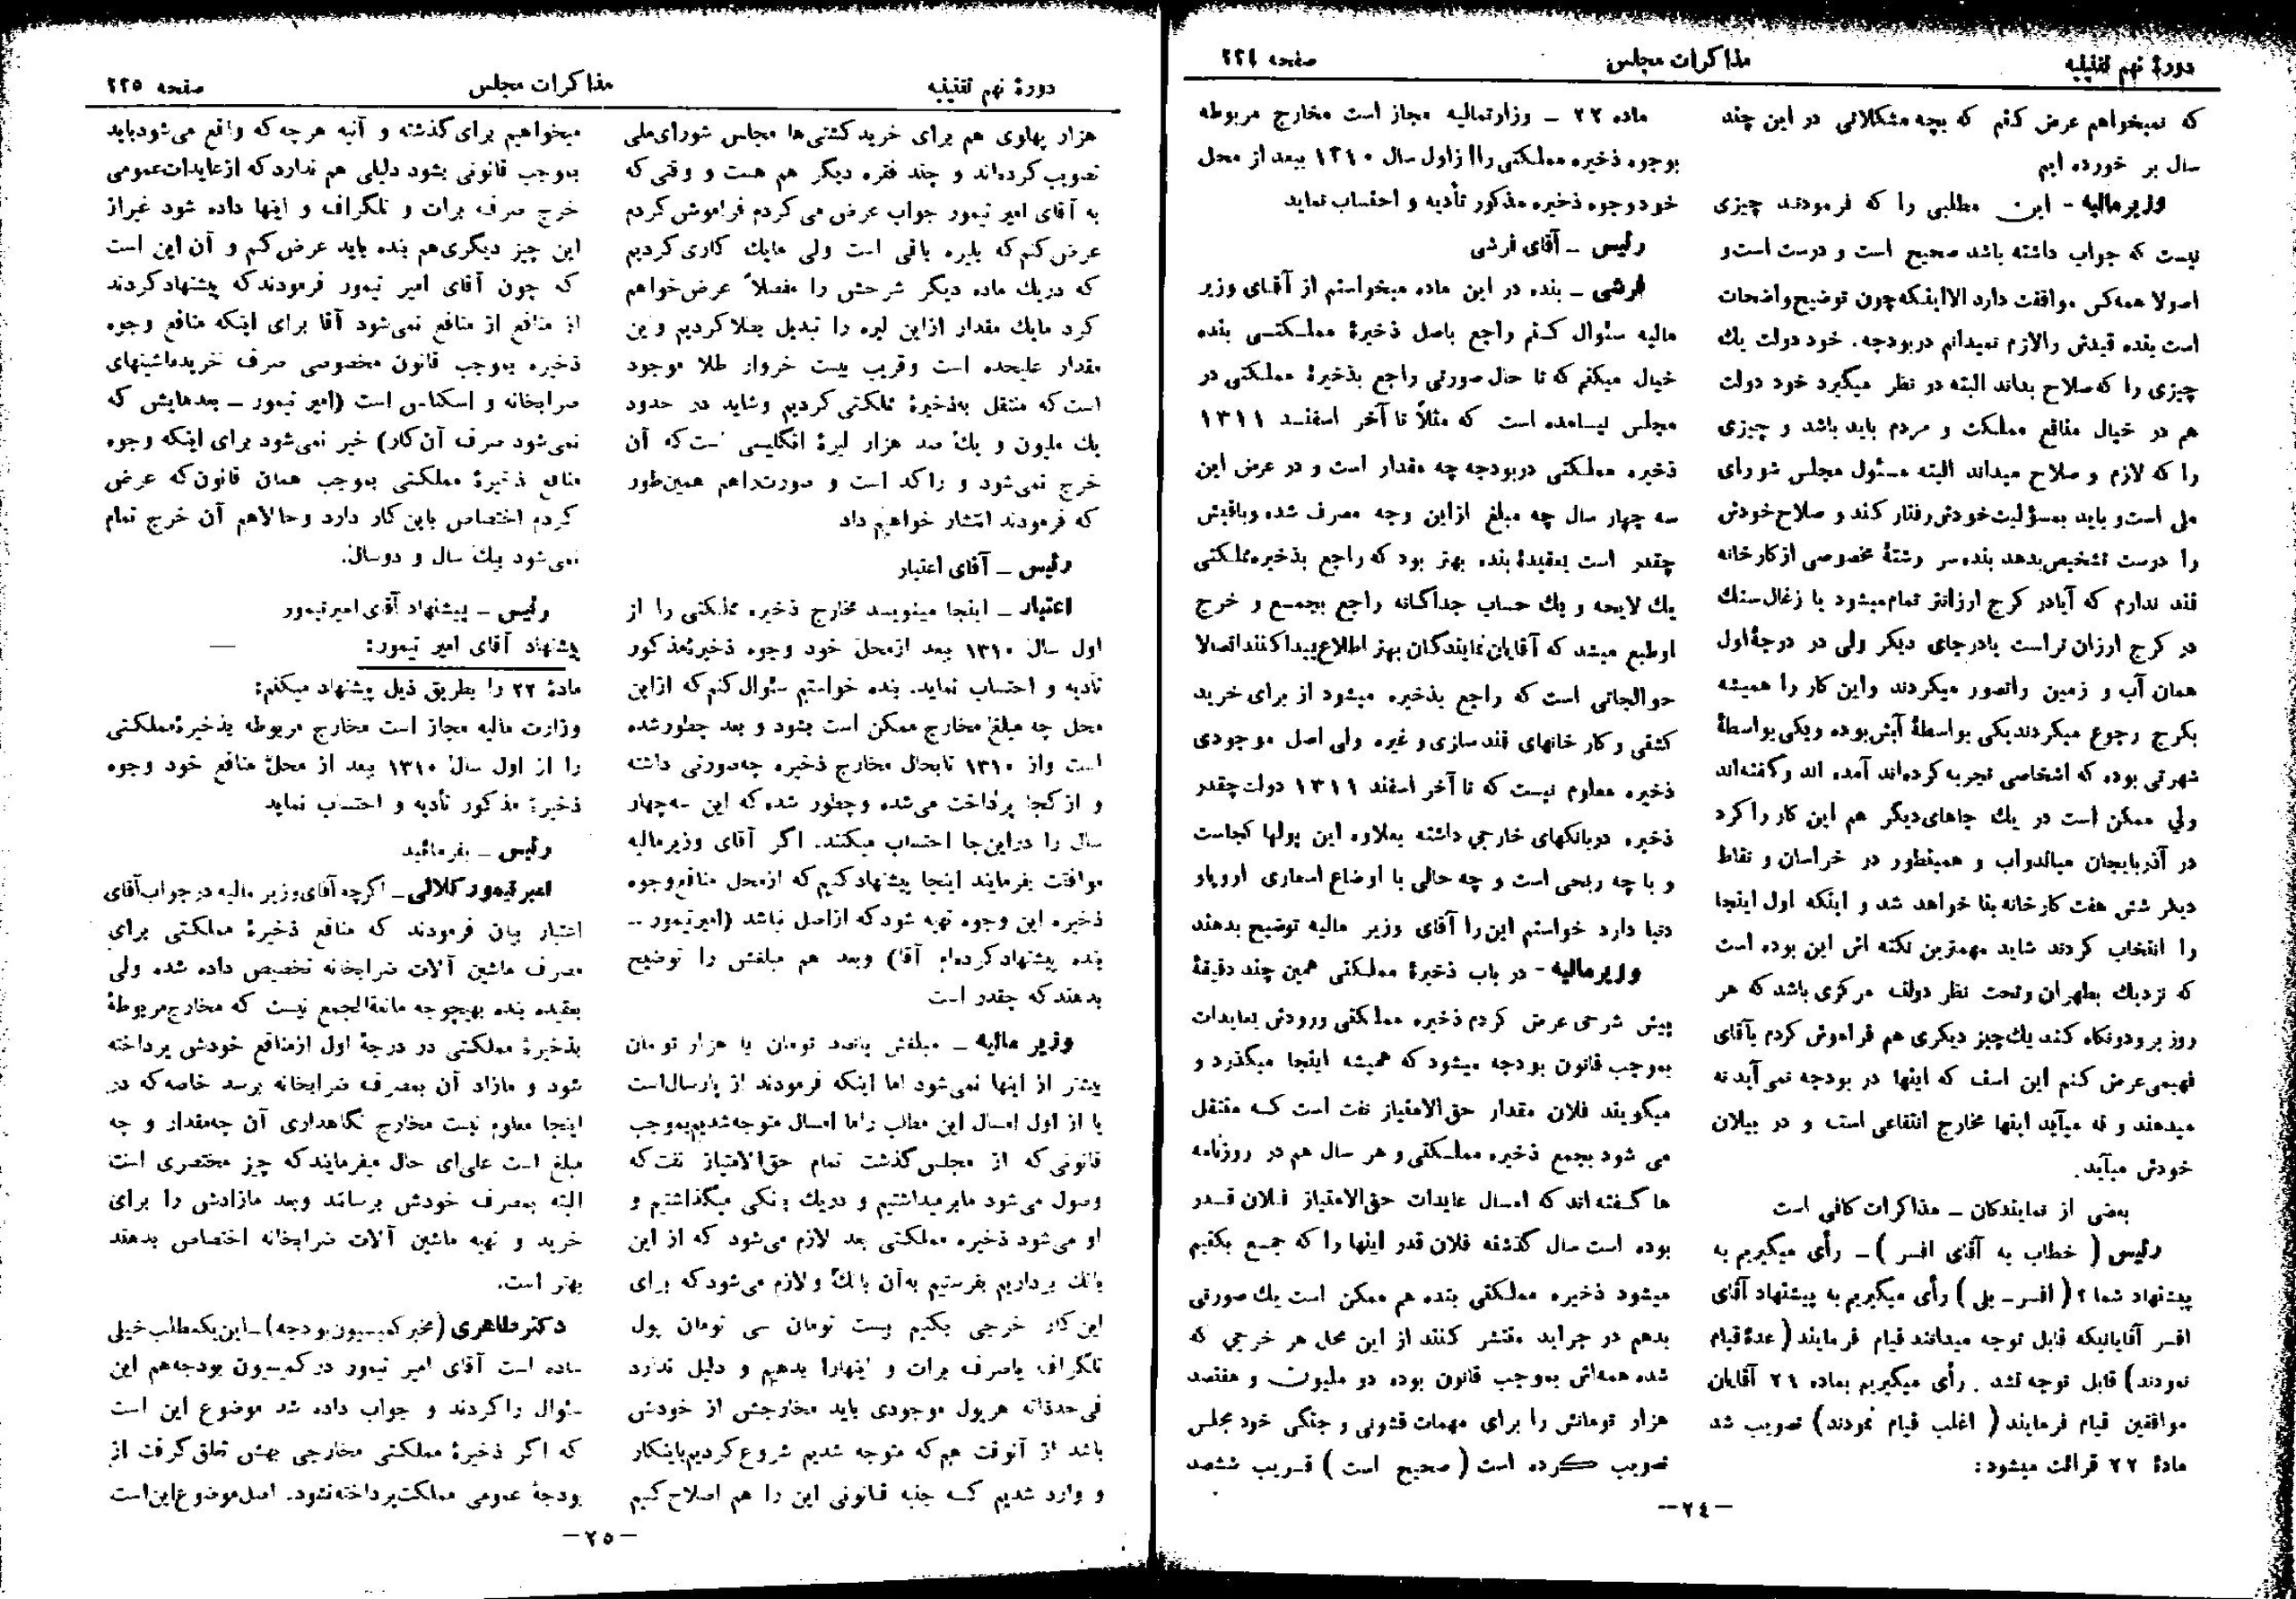 دورهٔ نهم تقنینیه
مذاکرات مجلس
صفحه ۲۲٤
که نمیخواهم عرض کنم که بچه مشکلاتی در این چند
سال بر خورده ایم
وزیر مالیه - این مطلبی را که فرمودند چیزی
نیست که جواب داشته باشد صحیح است و درست است و
اصولا همه کس موافقت دارد الا اینکه چون توضیح واضحات
است بنده قیدش را لازم نمیدانم در بودجه. خود دولت یك
چیزی را که صلاح بداند البته در نظر میگیرد خود دولت
هم در خیال منافع مملکت و مردم باید باشد و چیزی
را که لازم و صلاح میداند البته مسئول مجلس شورای
ملی است و باید بمسؤلیت خودش رفتار کند و صلاح خودش
را درست تشخیص بدهد بنده سر رشتهٔ مخصوصی از کارخانه
قند ندارم که آیا در کرج ارزانتر تمام میشود یا زغال سنك
در کرج ارزان تر است یا در جای دیگر ولی در درجهٔ اول
همان آب و زمین را تصور میکردند و این کار را همیشه
بکرج رجوع میکردند یکی بواسطهٔ آبش بوده و یکی بواسطهٔ
شهرتی بوده که اشخاصی تجربه کرده‌اند آمده اند و گفته‌اند
ولی ممکن است در یك جاهای دیگر هم این کار را کرد
در آذربایجان میاندواب و همینطور در خراسان و نقاط
دیگر شش هفت کارخانه بنا خواهد شد و اینکه اول اینجا
را انتخاب کردند شاید مهمترین نکته اش این بوده است
که نزدیك بطهران و تحت نظر دولت مرکزی باشد که هر
روز برود نگاه کند یك چیز دیگری هم فراموش کردم بآقای
فهیمی عرض کنم این است که اینها در بودجه نمی آید نه
میدهند و نه میآید اینها مخارج انتفاعی است و در بیلان
خودش میآید.
بعضی از نمایندگان - مذاکرات کافی است
رئیس ( خطاب به آقای افسر ) - رأی میگیریم به
پیشنهاد شما؟ ( افسر - بلی ) رأی میگیریم به پیشنهاد آقای
افسر آقایانیکه قابل توجه میدانند قیام فرمایند ( عدهٔ قیام
نمودند) قابل توجه نشد . رأی میگیریم بماده ۲۱ آقایان
موافقین قیام فرمایند ( اغلب قیام نمودند) تصویب شد
مادهٔ ۲۲ قرائت میشود:
ماده ۲۲ - وزارت مالیه مجاز است مخارج مربوطه
بوجوه ذخیره مملکتی را از اول سال ۱۳۱۰ ببعد از محل
خود وجوه ذخیره مذکور تأدیه و احتساب نماید
رئیس - آقای فرشی
فرشی - بنده در این ماده میخواستم از آقای وزیر
مالیه سئوال کنم راجع باصل ذخیرهٔ مملکتی بنده
خیال میکنم که تا حال صورتی راجع بذخیرهٔ مملکتی در
مجلس نیامده است که مثلاً تا آخر اسفند ۱۳۱۱
ذخیره مملکتی در بودجه چه مقدار است و در عرض این
سه چهار سال چه مبلغ از این وجه مصرف شده و باقیش
چقدر است بعقیدهٔ بنده بهتر بود که راجع بذخیره مملکتی
یك لایحه و یك حساب جداگانه راجع بجمع و خرج
او طبع میشد که آقایان نمایندگان بهتر اطلاع پیدا کنند اتصالا
حوالجاتی است که راجع بذخیره میشود از برای خرید
کشتی و کارخانهای قند سازی و غیره ولی اصل موجودی
ذخیره معلوم نیست که تا آخر اسفند ۱۳۱۱ دولت چقدر
ذخیره در بانکهای خارجی داشته بعلاوه این پولها کجاست
و با چه ربحی است و چه حالی با اوضاع اسعاری اروپا و
دنیا دارد خواستم این را آقای وزیر مالیه توضیح بدهند
وزیر مالیه - در باب ذخیرهٔ مملکتی همین چند دقیقهٔ
پیش شرحی عرض کردم ذخیره مملکتی ورودش بعایدات
بموجب قانون بودجه میشود که همیشه اینجا میگذرد و
میگویند فلان مقدار حق‌الامتیاز نفت است که منتقل
می شود بجمع ذخیره مملکتی و هر سال هم در روزنامه
ها گفته اند که امسال عایدات حق‌الامتیاز فلان قدر
بوده است سال گذشته فلان قدر اینها را که جمع بکنیم
میشود ذخیره مملکتی بنده هم ممکن است یك صورتی
بدهم در جراید منتشر کنند از این محل هر خرجی که
شده همه‌اش بموجب قانون بوده دو ملیون و هفتصد
هزار تومانش را برای مهمات قشونی و جنگی خود مجلس
تصویب کرده است ( صحیح است ) قریب ششصد
-۲٤-
دورهٔ نهم تقنینیه
مذاکرات مجلس
صفحه ۲۲۵
هزار پهلوی هم برای خرید کشتی‌ها مجلس شورای ملی
تصویب کرده‌اند و چند فقره دیگر هم هست و وقتی که
به آقای امیر تیمور جواب عرض می کردم فراموش کردم
عرض کنم که بلیره باقی است ولی ما یك کاری کردیم
که در یك ماده دیگر شرحش را مفصلاً عرض خواهم
کرد ما یك مقدار از این لیره را تبدیل بطلا کردیم و این
مقدار علیحده است و قریب بیست خروار طلا موجود
است که منتقل بذخیرهٔ مملکتی کردیم و شاید در حدود
یك ملیون و یك صد هزار لیرهٔ انگلیسی است که آن
خرج نمی‌شود و راکد است و صورت را هم همین‌طور
که فرمودند انتشار خواهیم داد
رئیس - آقای اعتبار
اعتبار - اینجا مینویسد مخارج ذخیره مملکتی را از
اول سال ۱۳۱۰ ببعد از محل خود وجوه ذخیره مذکور
تأدیه و احتساب نماید. بنده خواستم سئوال کنم که از این
محل چه مبلغ مخارج ممکن است بشود و بعد چطور شده
است و از ۱۳۱۰ تا بحال مخارج ذخیره چه صورتی داشته
و از کجا پرداخت می‌شده و چطور شده که این سه چهار
سال را در این‌جا احتساب میکنند. اگر آقای وزیر مالیه
موافقت بفرمایند اینجا پیشنهاد کنیم که از محل منافع وجوه
ذخیره این وجوه تهیه شود که از اصل نباشد (امیر تیمور -
بنده پیشنهاد کرده‌ام آقا) و بعد هم مبلغش را توضیح
بدهند که چقدر است
وزیر مالیه - مبلغش پانصد تومان یا هزار تومان
بیشتر از اینها نمی‌شود اما اینکه فرمودند از پارسال است
یا از اول امسال این مطلب را ما امسال متوجه شدیم بموجب
قانونی که از مجلس گذشت تمام حق‌الامتیاز نفت که
وصول می‌شود ما برمیداشتیم و در یك بانکی میگذاشتیم و
او می‌شود ذخیره مملکتی بعد لازم می‌شود که از این
بانك برداریم بفرستیم به آن بانك و لازم می‌شود که برای
این کار خرجی بکنیم بیست تومان سی تومان پول
تلگراف یا صرف برات و اینها را بدهیم و دلیل ندارد
فی حد ذاته هر پول موجودی باید مخارجش از خودش
باشد از آنوقت هم که متوجه شدیم شروع کردیم باینکار
و وارد شدیم که جنبه قانونی این را هم اصلاح کنیم
میخواهیم برای گذشته و آتیه هر چه که واقع می‌شود باید
بموجب قانونی بشود دلیلی هم ندارد که از عایدات عمومی
خرج صرف برات و تلگراف و اینها داده شود غیر از
این چیز دیگری هم بنده باید عرض کنم و آن این است
که چون آقای امیر تیمور فرمودند که پیشنهاد کردند
از منافع از منافع نمی‌شود آقا برای اینکه منافع وجوه
ذخیره بموجب قانون مخصوصی صرف خرید ماشینهای
ضرابخانه و اسکناس است (امیر تیمور - بعدهایش که
نمی‌شود صرف آن کار) خیر نمی‌شود برای اینکه وجوه
منافع ذخیرهٔ مملکتی بموجب همان قانون که عرض
کردم اختصاص باین کار دارد و حالا هم آن خرج تمام
نمی‌شود یك سال و دو سال.
رئیس - پیشنهاد آقای امیر تیمور
پیشنهاد آقای امیر تیمور:
مادهٔ ۲۲ را بطریق ذیل پیشنهاد میکنم:
وزارت مالیه مجاز است مخارج مربوطه بذخیرهٔ مملکتی
را از اول سال ۱۳۱۰ ببعد از محل منافع خود وجوه
ذخیرهٔ مذکور تأدیه و احتساب نماید
رئیس - بفرمائید
امیر تیمور کلالی - اگر چه آقای وزیر مالیه در جواب آقای
اعتبار بیان فرمودند که منافع ذخیرهٔ مملکتی برای
مصرف ماشین آلات ضرابخانه تخصیص داده شده ولی
بعقیده بنده بهیچوجه مانعة‌الجمع نیست که مخارج مربوطهٔ
بذخیرهٔ مملکتی در درجهٔ اول از منافع خودش پرداخته
شود و مازاد آن بمصرف ضرابخانه برسد خاصه که در
اینجا معلوم نیست مخارج نگاهداری آن چه مقدار و چه
مبلغ است علی‌ای حال میفرمایند که چیز مختصری است
البته بمصرف خودش برسانند و بعد مازادش را برای
خرید و تهیه ماشین آلات ضرابخانه اختصاص بدهند
بهتر است.
دکتر طاهری (مخبر کمیسیون بودجه) - این یك مطلب خیلی
ساده است آقای امیر تیمور در کمیسیون بودجه هم این
سئوال را کردند و جواب داده شد موضوع این است
که اگر ذخیرهٔ مملکتی مخارجی بهش تعلق گرفت از
بودجهٔ عمومی مملکت پرداخته نشود. اصل موضوع این است
-۲۵-